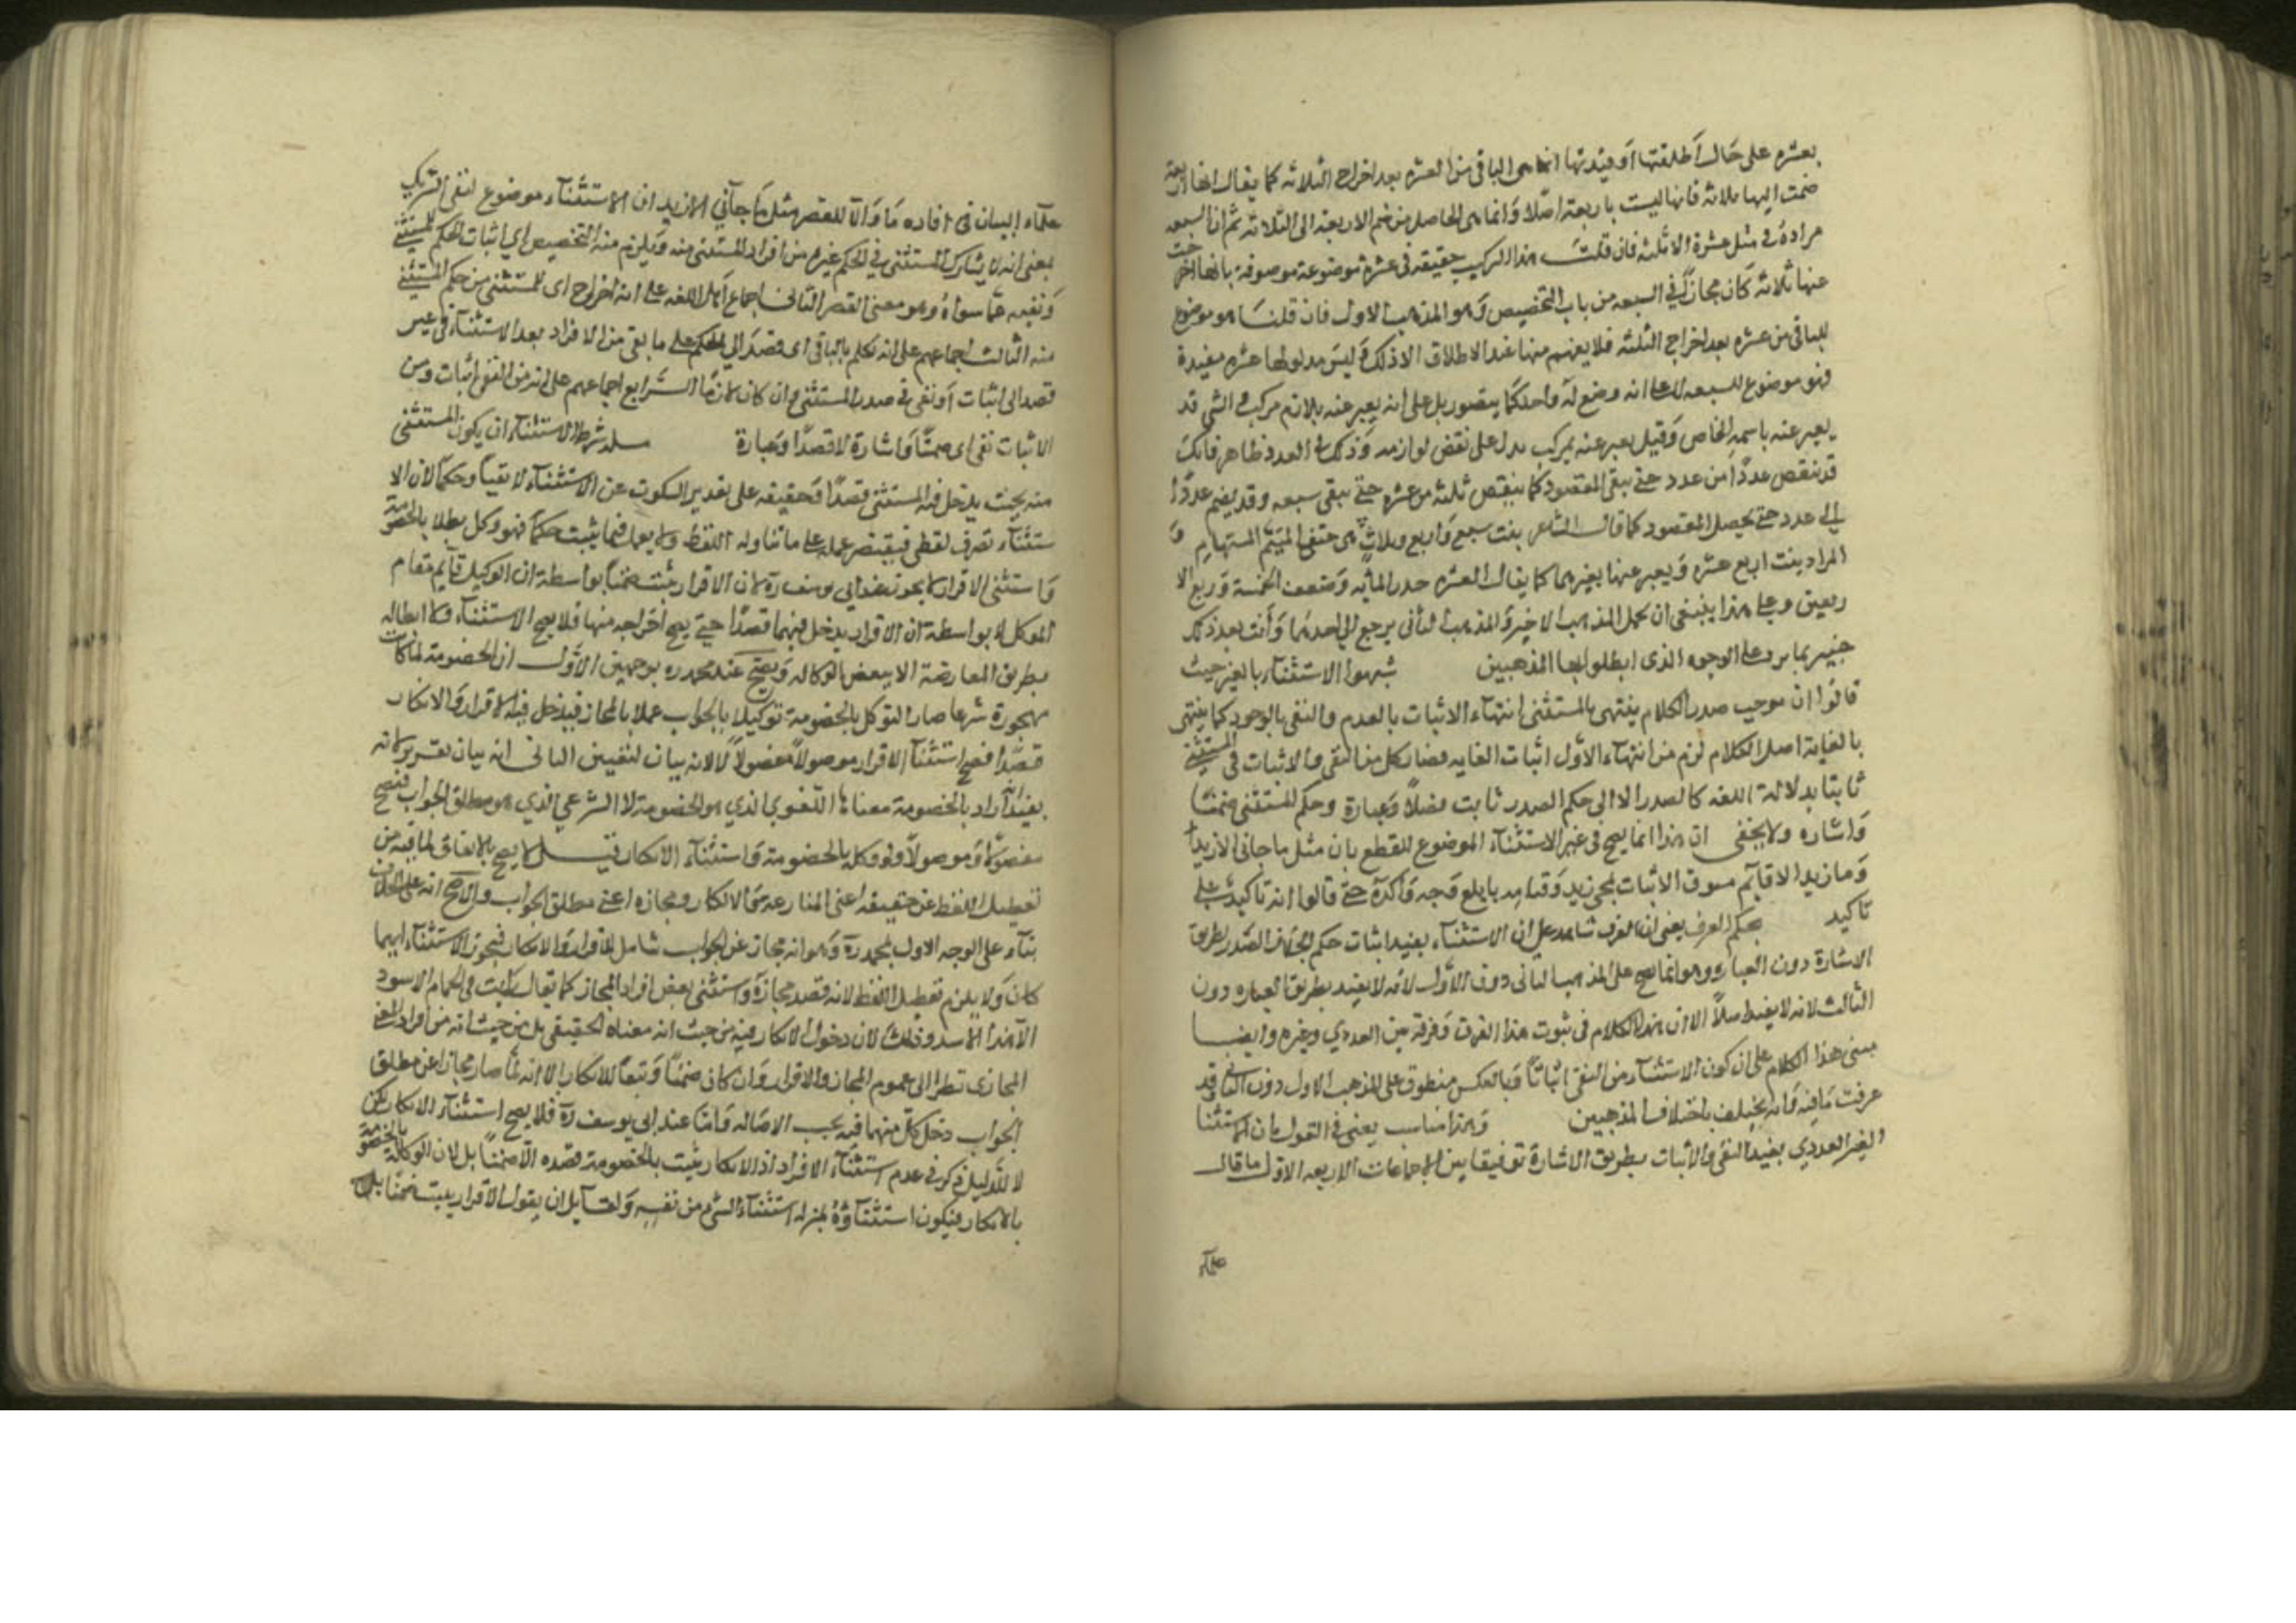 بعشره على حال اطلقتها او قيدتها انما هى الباقى من العشره بعد اخراج الثلاثه كما يقال انها اربعة
ضمت اليها ثلاثه فانها ليست باربعة اصلا وانما هى الحاصل من ضم الاربعة الى الثلاثة ثم ان السبعه
مراده فى مثل عشرة الا ثلثه فان قلت هذا التركيب حقيقة فى عشرة موضوعة موصوفة بانها اخرجت
عنها ثلاثه كان مجازا فى السبعه من باب التخصيص وهو المذهب الاول فان قلنا هو موضوع
للباقى من عشره بعد اخراج الثلثه فلا يفهم منها عند الاطلاق الا ذلك وليس مدلولها عشره مقيدة
فهو موضوع للسبعه لا على انه وضع له واحد كما يتصور بل على انه يعبر عنه بلازم مركب و الشى قد
يعبر عنه باسمه الخاص وقيل يعبر عنه بمركب يدل على بعض لوازمه وذلك فى العدد ظاهر فانك
قد تنقص عددا من عدد حتى يبقى المقصود كما ينقص ثلثه من عشره حتى يبقى سبعه وقد يضم عددا
الى عدد حتى يحصل المقصود كما قال الشاعر بنت سبع واربع وثلاث هى حتف المتيم المستهام و
المراد بنت اربع عشره ويعبر عنها بغيرهما كما يقال العشره جذر المايه وضعف الخمسة وربع الا
ربعين وعلى هذا ينبغى ان يحمل المذهب الاخير والمذهب الثانى يرجع الى احدهما وانت بعد ذلك
خبير بما يرد على الوجوه الذى ابطلوا بها المذهبين شبهوا الاستثناء بالغير حيث
قالوا ان موجب صدر الكلام ينتهى بالمستثنى انتهاء الاثبات بالعدم والنفى بالوجود كما ينتهى
بالغاية اصل الكلام لزم من انتهاء الاول اثبات الغايه فصار كل من النفى والاثبات فى المستثنى
ثابتا بدلالة اللغه كالصدر الا الى حكم الصدر ثابت فضلا وعبارة وحكم المستثنى ضمنا
واشاره ولا يخفى ان هذا انما يصح فى غير الاستثناء الموضوع للقطع بان مثل ما جانى الا زيد
وما زيد الا قائم مسوق الاثبات لمجئ زيد وقيامه بابلغ وجه واكده حتى قالوا انه تاكيد على
تاكيد بحكم العرف يعنى ان العرف شاهد على ان الاستثناء يفيد اثبات حكم الصدر بطريق
الاشارة دون العباره وهو انما يصح على المذهب الثانى دون الاول لانه لا يفيد بطريق العباره دون
الثالث لانه لا يفيد اصلا الا ان هذا الكلام فى ثبوت هذا الفرق وفرقه بين العددي وغيره وايضا
مبنى هذا الكلام على ان كون الاستثناء من النفى اثباتا وبالعكس منطوق على المذهب الاول دون الثانى وقد
عرفت ما فيه وانه يختلف باختلاف المذهبين وهذا مناسب يعنى فى القول بان الاستثنا
الغير العددي يفيد النفى والاثبات بطريق الاشارة توفيقا بين الاجماعات الاربعه الاول ما قال
علماء
علماء البيان فى افاده ما والا للقصر مثل ما جآنى الا زيد ان الاستثناء موضوع لنفى التشريك
بمعنى انه لا يشارك المستثنى فى الحكم غيره من افراد المستثنى منه ويلزم منه التخصيص اي اثبات الحكم للمستثنى
ونفيه عما سواه وهو معنى القصر الثانى اجماع اهل اللغه على انه اخراج اى للمستثنى من حكم المستثنى
منه الثالث اجماعهم على انه تكلم بالباقى اى قصد الى الحكم على ما بقى من الافراد بعد الاستثناء فى غير
قصد الى اثبات او نفى فى صدر المستثنى وان كان لازما الرابع اجماعهم على انه من النفى اثبات ومن
الاثبات نفى اى ضمنا واشارة لا قصدا وعبارة مسله شرط الاستثناء ان يكون المستثنى
منه بحيث يدخل فيه المستثنى قصدا وحقيقة على تقدير السكوت عن الاستثناء لا تبعا وحكما لان الا
ستثناء تصرف لفظى فيقتصر عمله على ما تناوله اللفظ ولا يعمل فيما يثبت حكما فهو وكل رجلا بالخصومة
واستثنى الاقرار لا يجوز عند ابى يوسف رة لان الاقرار يثبت ضمنا بواسطة ان الوكيل قايم مقام
الموكل لا بواسطة ان الاقرار يدخل فيهما قصدا حتى يصح اخراجه منها فلا يصح الاستثناء ولا ابطاله
بطريق المعارضة الا ببعض الوكاله ويصح عند محمد ره بوجهين الاول ان الخصومة لما كانت
مهجورة شرعا صار التوكيل بالخصومة توكيلا بالجواب عملا بالمجاز فيدخل فيه الاقرار والانكار
قصدا فصح استثناء الاقرار موصولا مفصولا لانه بيان لتغيير الثانى انه بيان تقرير لانه
يفيد انه اراد بالخصومة معناها اللغوي الذي هو الخصومة لا الشرعي الذي هو مطلق الجواب فصح
مفصولا وموصولا ولو وكله بالخصومة واستثناء الانكار قيل لا يصح بالاتفاق لما فيه من
تعطيل اللفظ عن حقيقته اعنى المنازعة والانكار ومجازه اعنى مطلق الجواب والاصح انه على الخلاف
بناء على الوجه الاول لمحمد رة وهو انه مجاز عن الجواب شامل للاقرار والانكار فيجوز الاستثناء ايهما
كان ولا يلزم تعطيل اللفظ لانه قصد مجازه واستثنى بعض افراد المجاز كما يقال رايت فى الحمام الاسود
الا هذا الاسد وذلك لان دخول الانكار فيه من حيث انه معناه الحقيقي بل من حيث انه من افراد المعنى
المجازى نظرا الى عموم المجاز والاقرار وان كان ضمنا وتبعا للانكار الا انه لما صار مجازا عن مطلق
الجواب دخل كل منهما فيه بحسب الاصاله واما عند ابى يوسف رة فلا يصح استثناء الانكار لكن
لا للدليل المذكور فى عدم استثناء الاقرار اذ الانكار يثبت بالخصومة قصده لا ضمنا بل لان الوكاله بالخصومة
بالانكار فيكون استثناؤه بمنزلة استثناء الشئ من نفسه ولقايل ان يقول الاقرار يثبت ضمنا